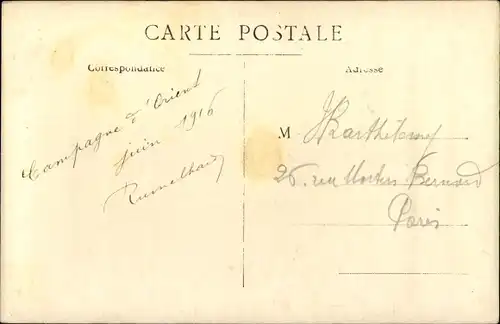 CARTE POSTALE
Correspondance
Adresse
Campagne d'Orient
Juin 1916
M
26, rue Bernard
Paris